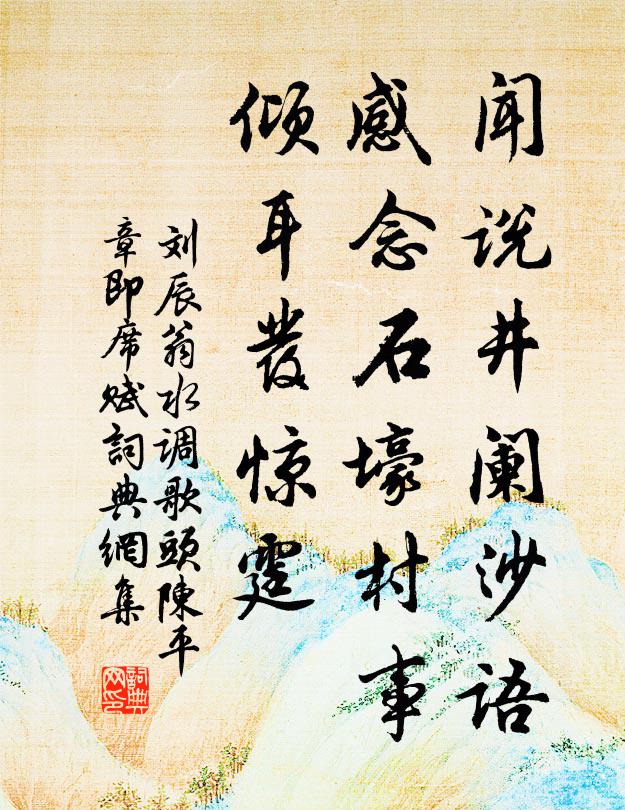 闻说井阑沙语
感念石壕村事
倾耳發惊霆
刘辰翁水调歌頭陳平
章即席赋詞典網集
詞典
网印